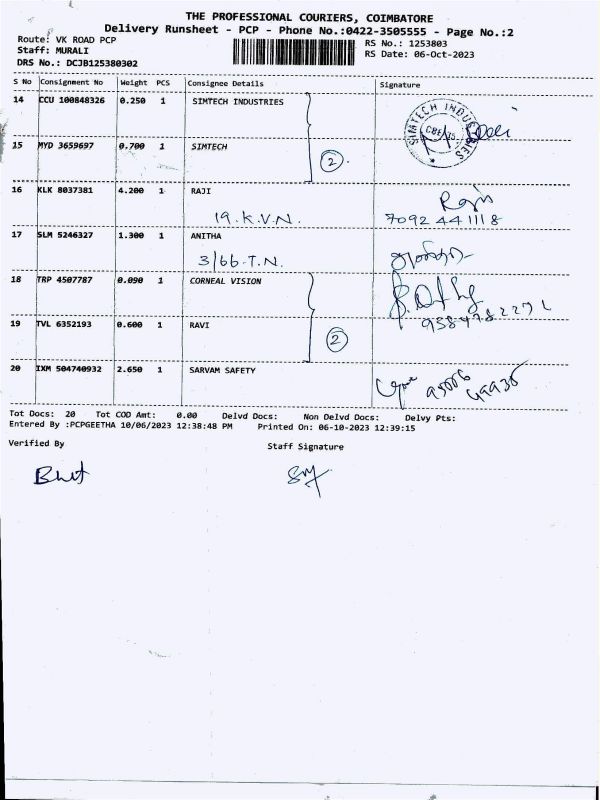 THE PROFESSIONAL COURIERS, COIMBATORE
Delivery Runsheet - PCP - Phone No.:0422-3505555 - Page No.:2
Route: VK ROAD PCP RS No.: 1253803
Staff: MURALI RS Date: 06-Oct-2023
DRS No.: DCJB125380302
S No Consignment No Weight PCS Consignee Details Signature
14 CCU 100848326 0.250 1 SIMTECH INDUSTRIES
SIMTECH INDUSTRIES
CBE
15 MYD 3659697 0.700 1 SIMTECH
2
16 KLK 8037381 4.200 1 RAJI Raji
19. K.V.N. 7092 441118
17 SLM 5246327 1.300 1 ANITHA
3/66.T.N.
18 TRP 4507787 0.090 1 CORNEAL VISION
19 TVL 6352193 0.600 1 RAVI
2
20 IXM 504740932 2.650 1 SARVAM SAFETY
Tot Docs: 20 Tot COD Amt: 0.00 Delvd Docs: Non Delvd Docs: Delvy Pts:
Entered By :PCPGEETHA 10/06/2023 12:38:48 PM Printed On: 06-10-2023 12:39:15
Verified By Staff Signature